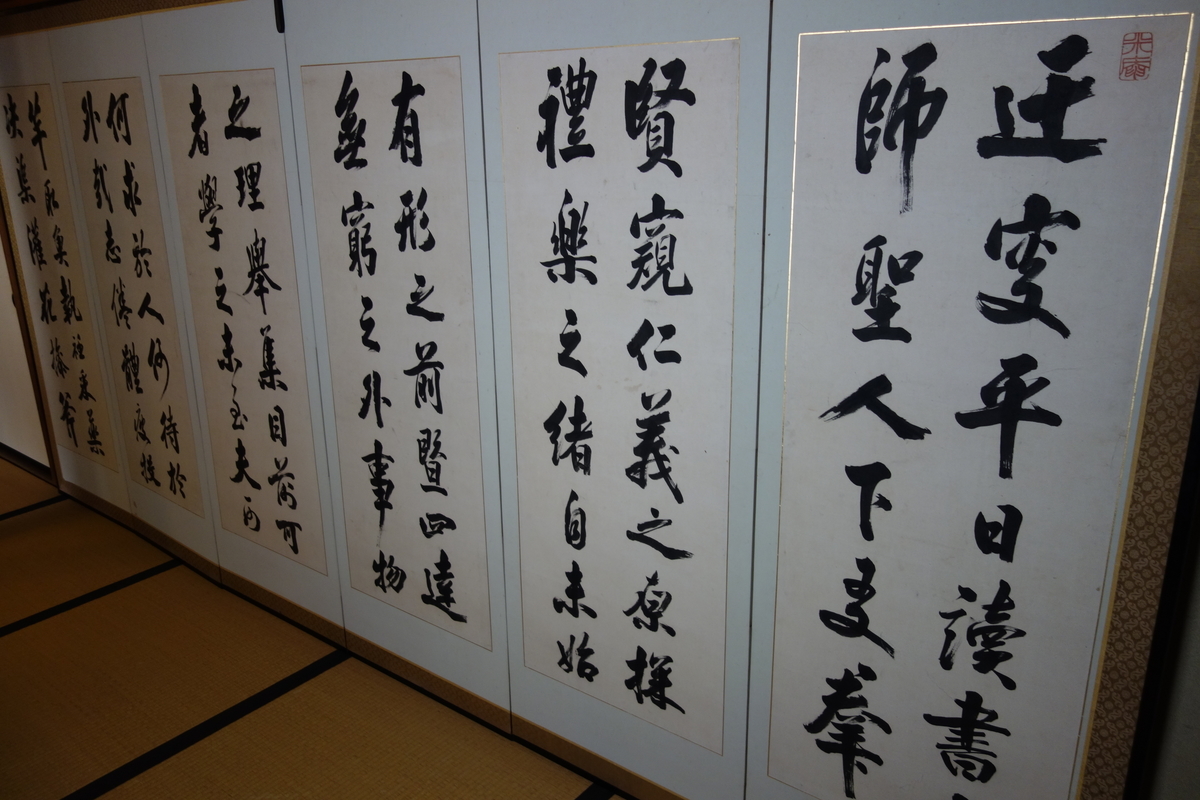 迂叟平日讀書
師聖人下友羣
賢窺仁義之原探
禮樂之緒自未始
有形之前暨四達
無窮之外事物
之理舉集目前可
者學之未至夫可
何求於人何待於
外哉志倦體疲投
竿取魚執衽采藥
決渠灌花操斧